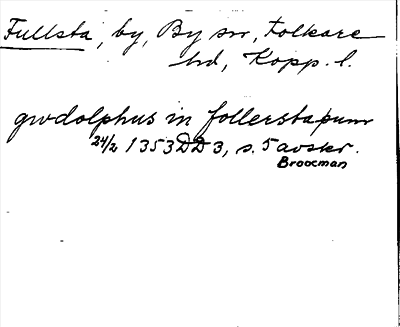 Fullsta, by, By sn, Folkare
hd, Kopp. l.
gwdolphus in follerstapum
24/2 1353 DD 3, s. 5 avskr.
Brooman